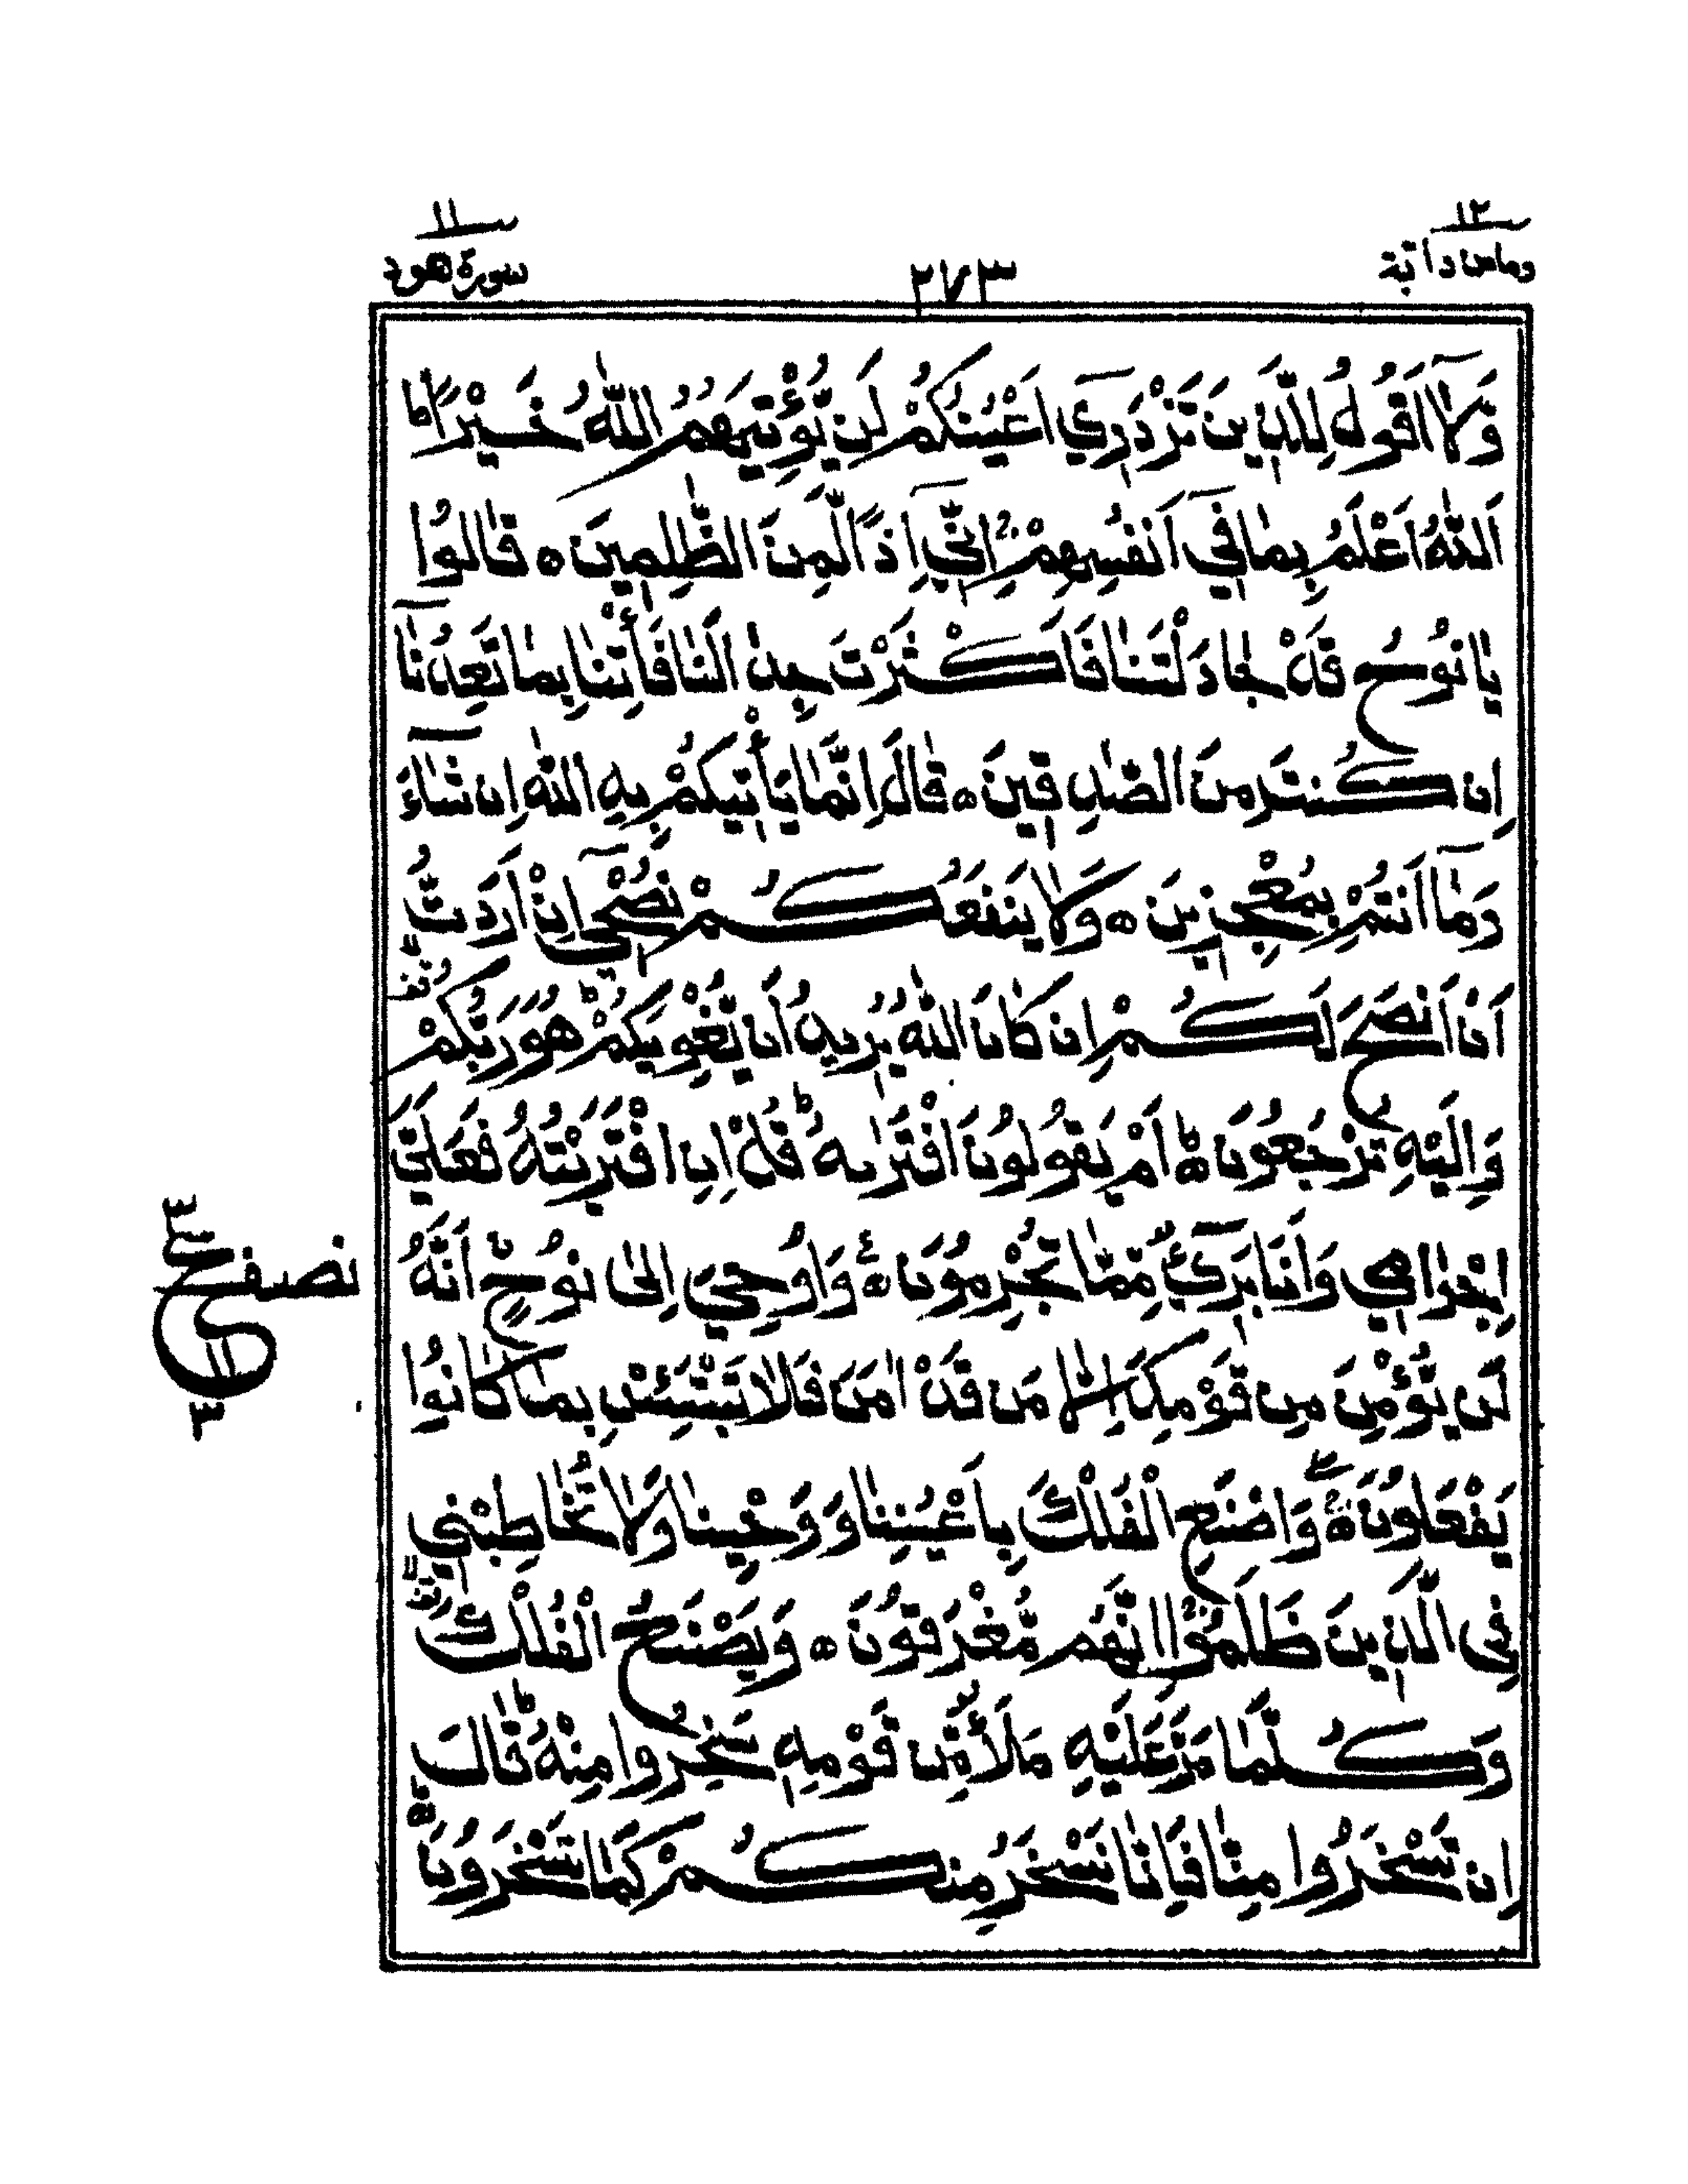 ١٢
وما من دآبة
٢٧٣
١١
سورة هود
وَلَآ اَقُوْلُ لِلَّذِيْنَ تَزْدَرِيْٓ اَعْيُنُكُمْ لَن يُّؤْتِيَهُمُ اللّٰهُ خَيْرًاؕ
اَللّٰهُ اَعْلَمُ بِمَا فِيْٓ اَنفُسِهِمْ اِنِّيْٓ اِذًا لَّمِنَ الظّٰلِمِيْنَ ○ قَالُوْا
يٰا نُوْحُ قَدْ جٰادَلْتَنٰا فَاَكْثَرْتَ جِدَالَنٰا فَأْتِنٰا بِمٰا تَعِدُنَآ
اِن كُنتَ مِنَ الصّٰدِقِيْنَ ○ قَالَ اِنَّمٰا يَأْتِيْكُمْ بِهِ اللّٰهُ اِن شَآءَ
وَمَآ اَنتُمْ بِمُعْجِزِيْنَ ○ وَلَا يَنفَعُكُمْ نُصْحِيْٓ اِنْ اَرَدتُّ
اَنْ اَنصَحَ لَكُمْ اِن كَانَ اللّٰهُ يُرِيْدُ اَن يُّغْوِيَكُمْ هُوَ رَبُّكُمْ
وَاِلَيْهِ تُرْجَعُوْنَ ○ اَمْ يَقُوْلُوْنَ افْتَرٰىهُ قُلْ اِنِ افْتَرَيْتُهُ فَعَلَيَّ
اِجْرَامِيْ وَاَنَا بَرِيْٓءٌ مِّمّٰا تُجْرِمُوْنَ ○ وَاُوْحِيَ اِلٰى نُوْحٍ اَنَّهُ
نصف
٣
ع
١١
٣
لَن يُّؤْمِنَ مِن قَوْمِكَ اِلَّا مَن قَدْ اٰمَنَ فَلَا تَبْتَئِسْ بِمٰا كَانُوْا
يَفْعَلُوْنَ ○ وَاصْنَعِ الْفُلْكَ بِاَعْيُنِنٰا وَوَحْيِنٰا وَلَا تُخٰاطِبْنِيْ
فِي الَّذِيْنَ ظَلَمُوْا اِنَّهُم مُّغْرَقُوْنَ ○ وَيَصْنَعُ الْفُلْكَ
وَكُلَّمٰا مَرَّ عَلَيْهِ مَلَأٌ مِّن قَوْمِهِ سَخِرُوْا مِنْهُ قَالَ
اِن تَسْخَرُوْا مِنّٰا فَاِنّٰا نَسْخَرُ مِنكُمْ كَمٰا تَسْخَرُوْنَ